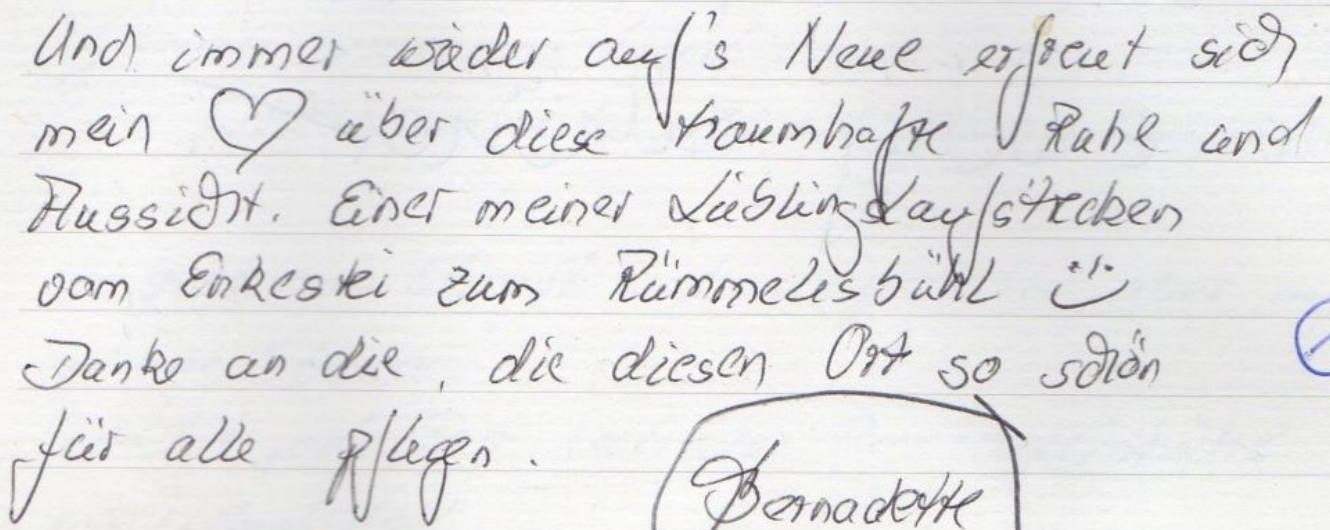 Und immer wieder auf's Neue erfreut sich
mein ♡ über diese traumhafte Ruhe und
Aussicht. Einer meiner Lieblingslaufstrecken
vom Enkestei zum Rümmelesbühl
Danke an die, die diesen Ort so schön
für alle pflegen.
Bernadette